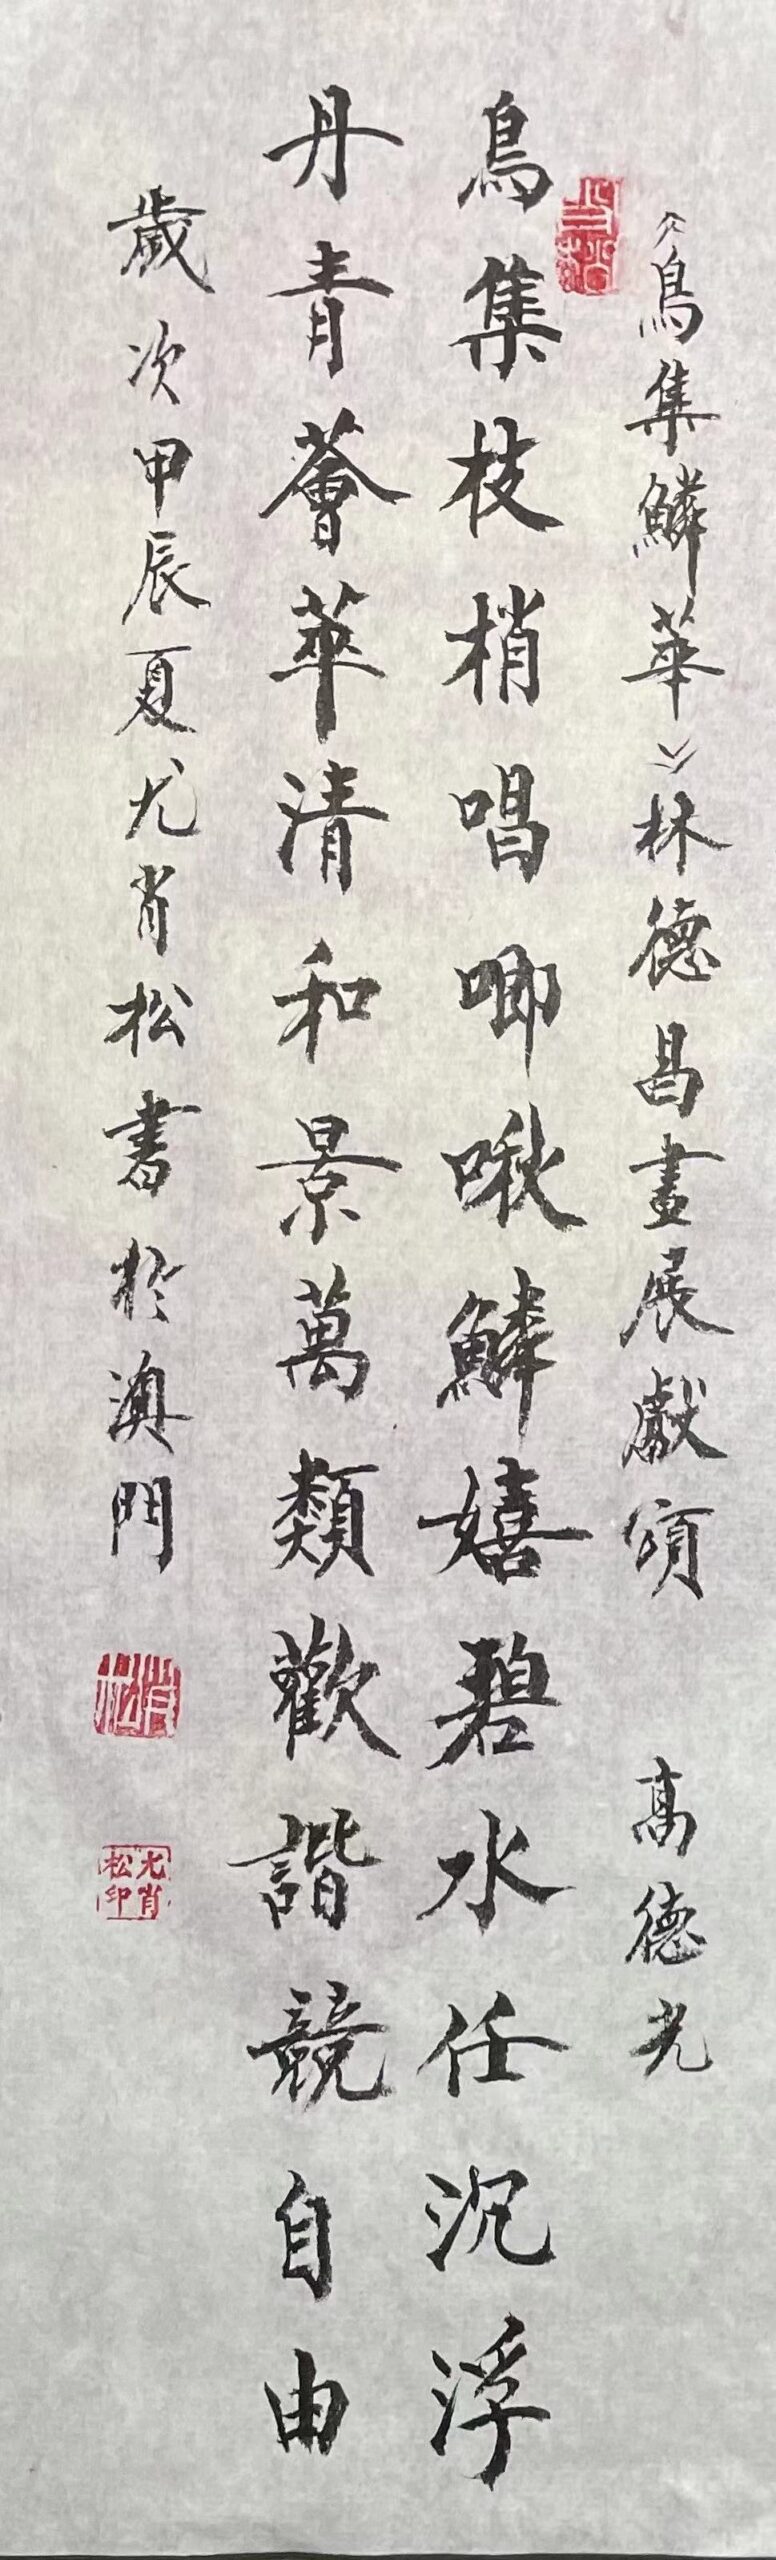 《鳥集鱗華》林德昌畫展獻頌 高德光
鳥集枝梢唱唧啾鱗嬉碧水任沉浮
丹青薈萃清和景萬類歡諧競自由
歲次甲辰夏尤肖松書於澳門
肖松
尤肖松印